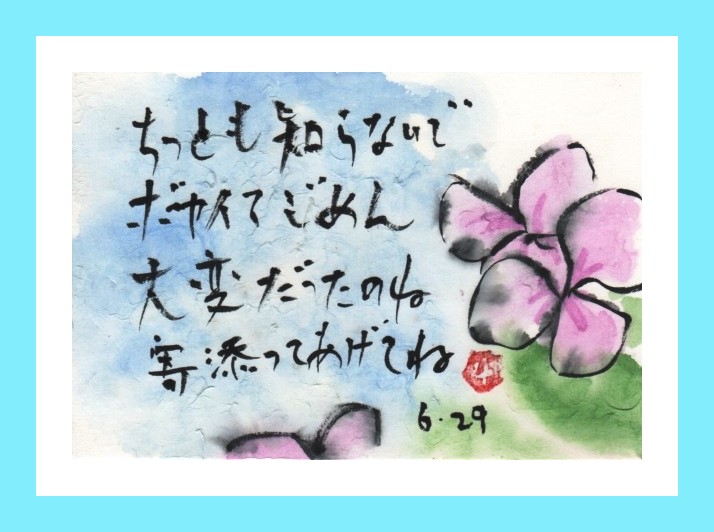 ちっとも知らないで
ボヤイてごめん
大変だったのね
寄添ってあげてね
6.29